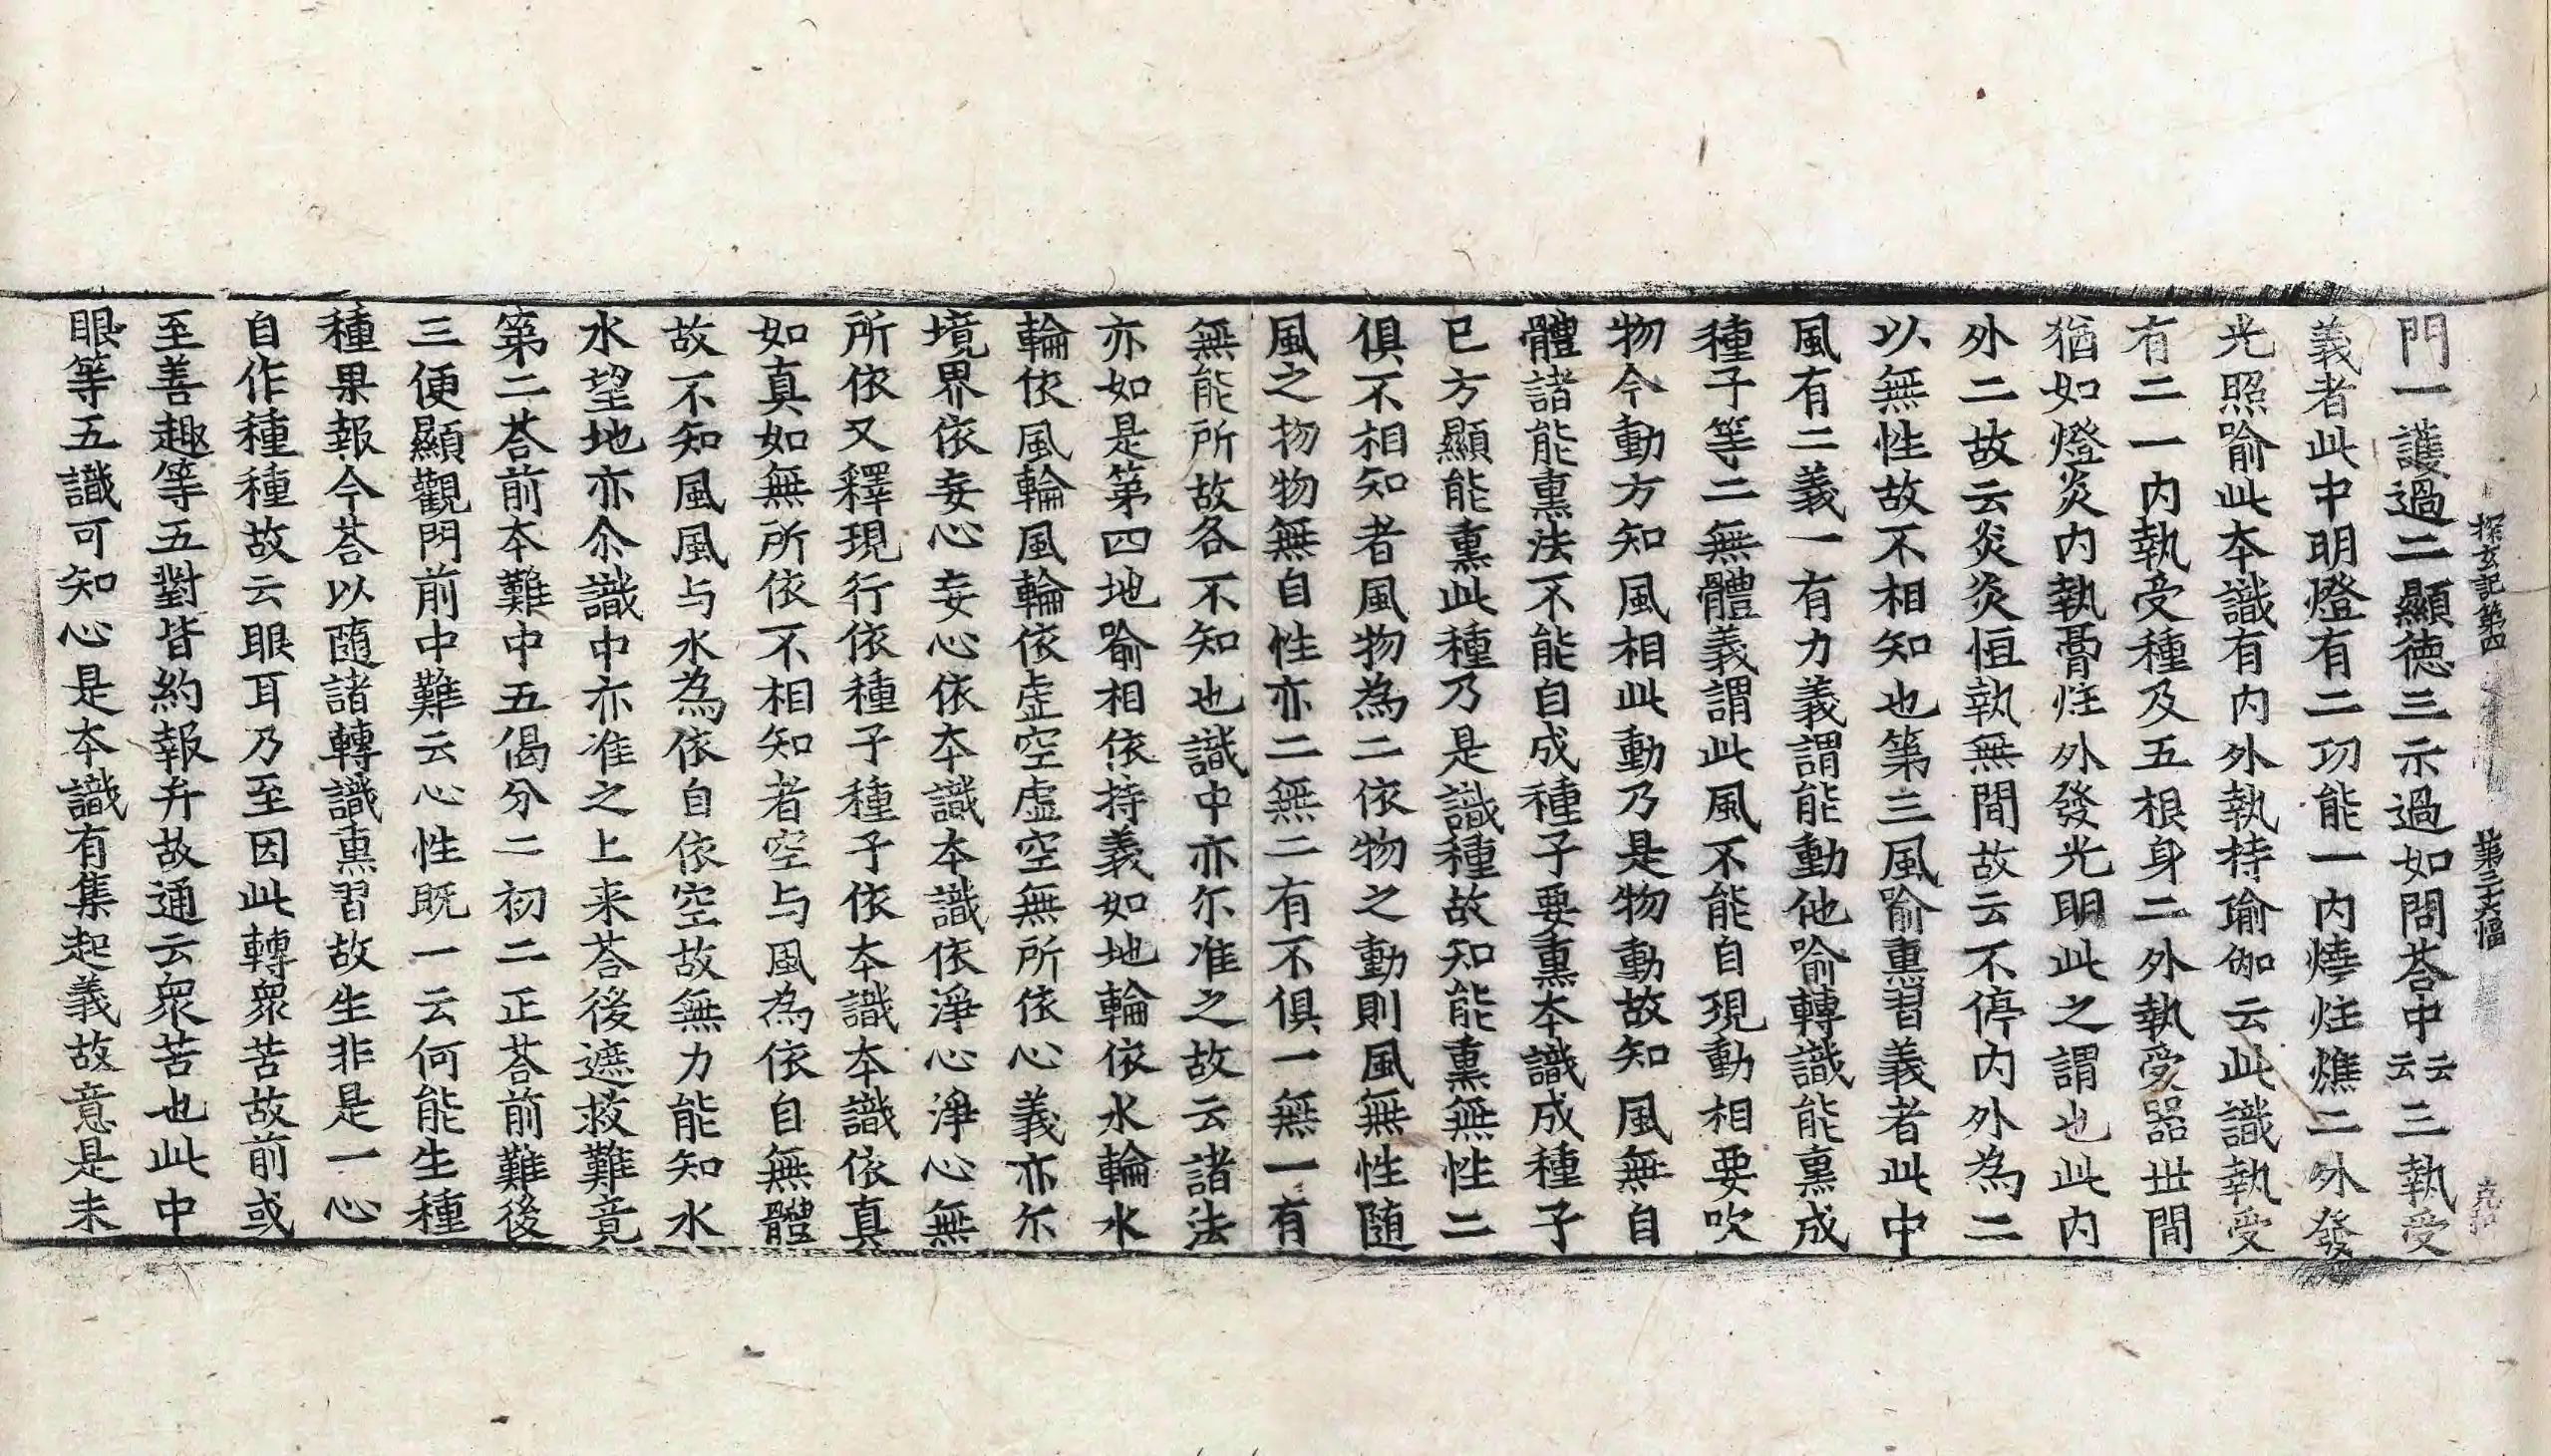 探玄記第四　第三十六幅
門一護過二顯徳三示過如問荅中云云三執受
義者此中明燈有二功能一内燒炷燋二外發
光照喻此本識有内外執持瑜伽云此識執受
有二一内執受種及五根身二外執受器世間
猶如燈炎内執膏炷外發光明此之謂也此内
外二故云炎炎恒執無間故云不停内外為二
以無性故不相知也第三風喻熏習義者此中
風有二義一有力義謂能動他喻轉識能熏成
種子等二無體義謂此風不能自現動相要吹
物今動方知風相此動乃是物動故知風無自
體諸能熏法不能自成種子要熏本識成種子
已方顯能熏此種乃是識種故知能熏無性二
俱不相知者風物為二依物之動則風無性随
風之物物無自性亦二無二有不俱一無一有
無能所故各不知也識中亦尓准之故云諸法
亦如是第四地喻相依持義如地輪依水輪水
輪依風輪風輪依虛空虛空無所依心義亦尓
境界依妄心妄心依本識本識依淨心淨心無
所依又釋現行依種子種子依本識本識依真
如真如無所依不相知者空与風為依自無體
故不知風風与水為依自依空故無力能知水
水望地亦尒識中亦准之上来荅後遮救難竟
第二荅前本難中五偈分二初二正荅前難後
三便顯觀門前中難云心性既一云何能生種
種果報今荅以隨諸轉識熏習故生非是一心
自作種種故云眼耳乃至因此轉衆苦故前或
至善趣等五對皆約報弁故通云衆苦也此中
眼等五識可知心是本識有集起義故意是未